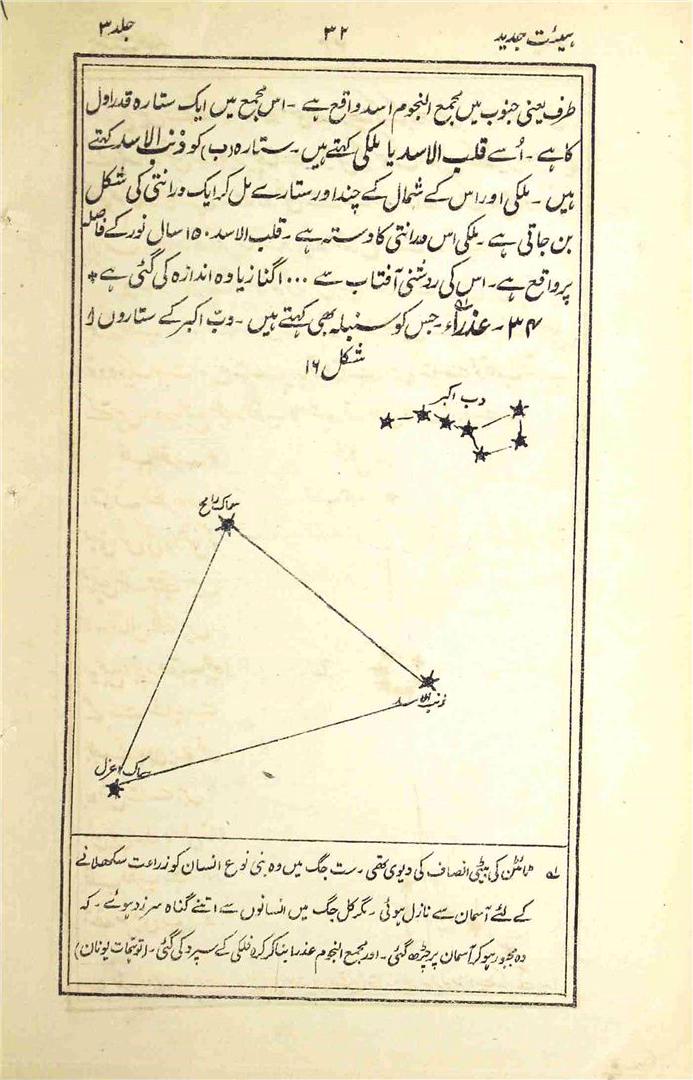 ہیئت جدید ۳۲ جلد ۳
طرف یعنی جنوب میں مجمع النجوم اسد واقع ہے ۔ اس مجمع میں ایک ستارہ قدر اول
کا ہے ۔ اُسے قلب الاسد یا ملکی کہتے ہیں ۔ ستارہ (ب) کو ذنب الاسد کہتے
ہیں ۔ ملکی اور اس کے شمال کے چند اور ستارے مل کر ایک درانتی کی شکل
بن جاتی ہے ۔ ملکی اس درانتی کا دستہ ہے ۔ قلب الاسد ۱۵۰ سال نور کے فاصلہ
پر واقع ہے ۔ اس کی روشنی آفتاب سے ۱۰۰۰ گنا زیادہ اندازہ کی گئی ہے *
۳۴ ۔ عذراء ۔ جس کو سنبلہ بھی کہتے ہیں ۔ دبّ اکبر کے ستاروں ا
شکل ۱۶
دب اکبر
سماک رامح
ذنب الاسد
سماک اعزل
ٹائٹن کی بیٹی انصاف کی دیوی تھی ۔ ست جگ میں وہ بنی نوع انسان کو زراعت سکھلانے
کے لئے آسمان سے نازل ہوئی ۔ مگر کل جگ میں انسانوں سے اتنے گناہ سرزد ہوئے ۔ کہ
وہ مجبور ہو کر آسمان پر چڑھ گئی ۔ اور مجمع النجوم عذرا بنا کر کرہ فلکی کے سپرد کی گئی ۔ (توہمات یونان)